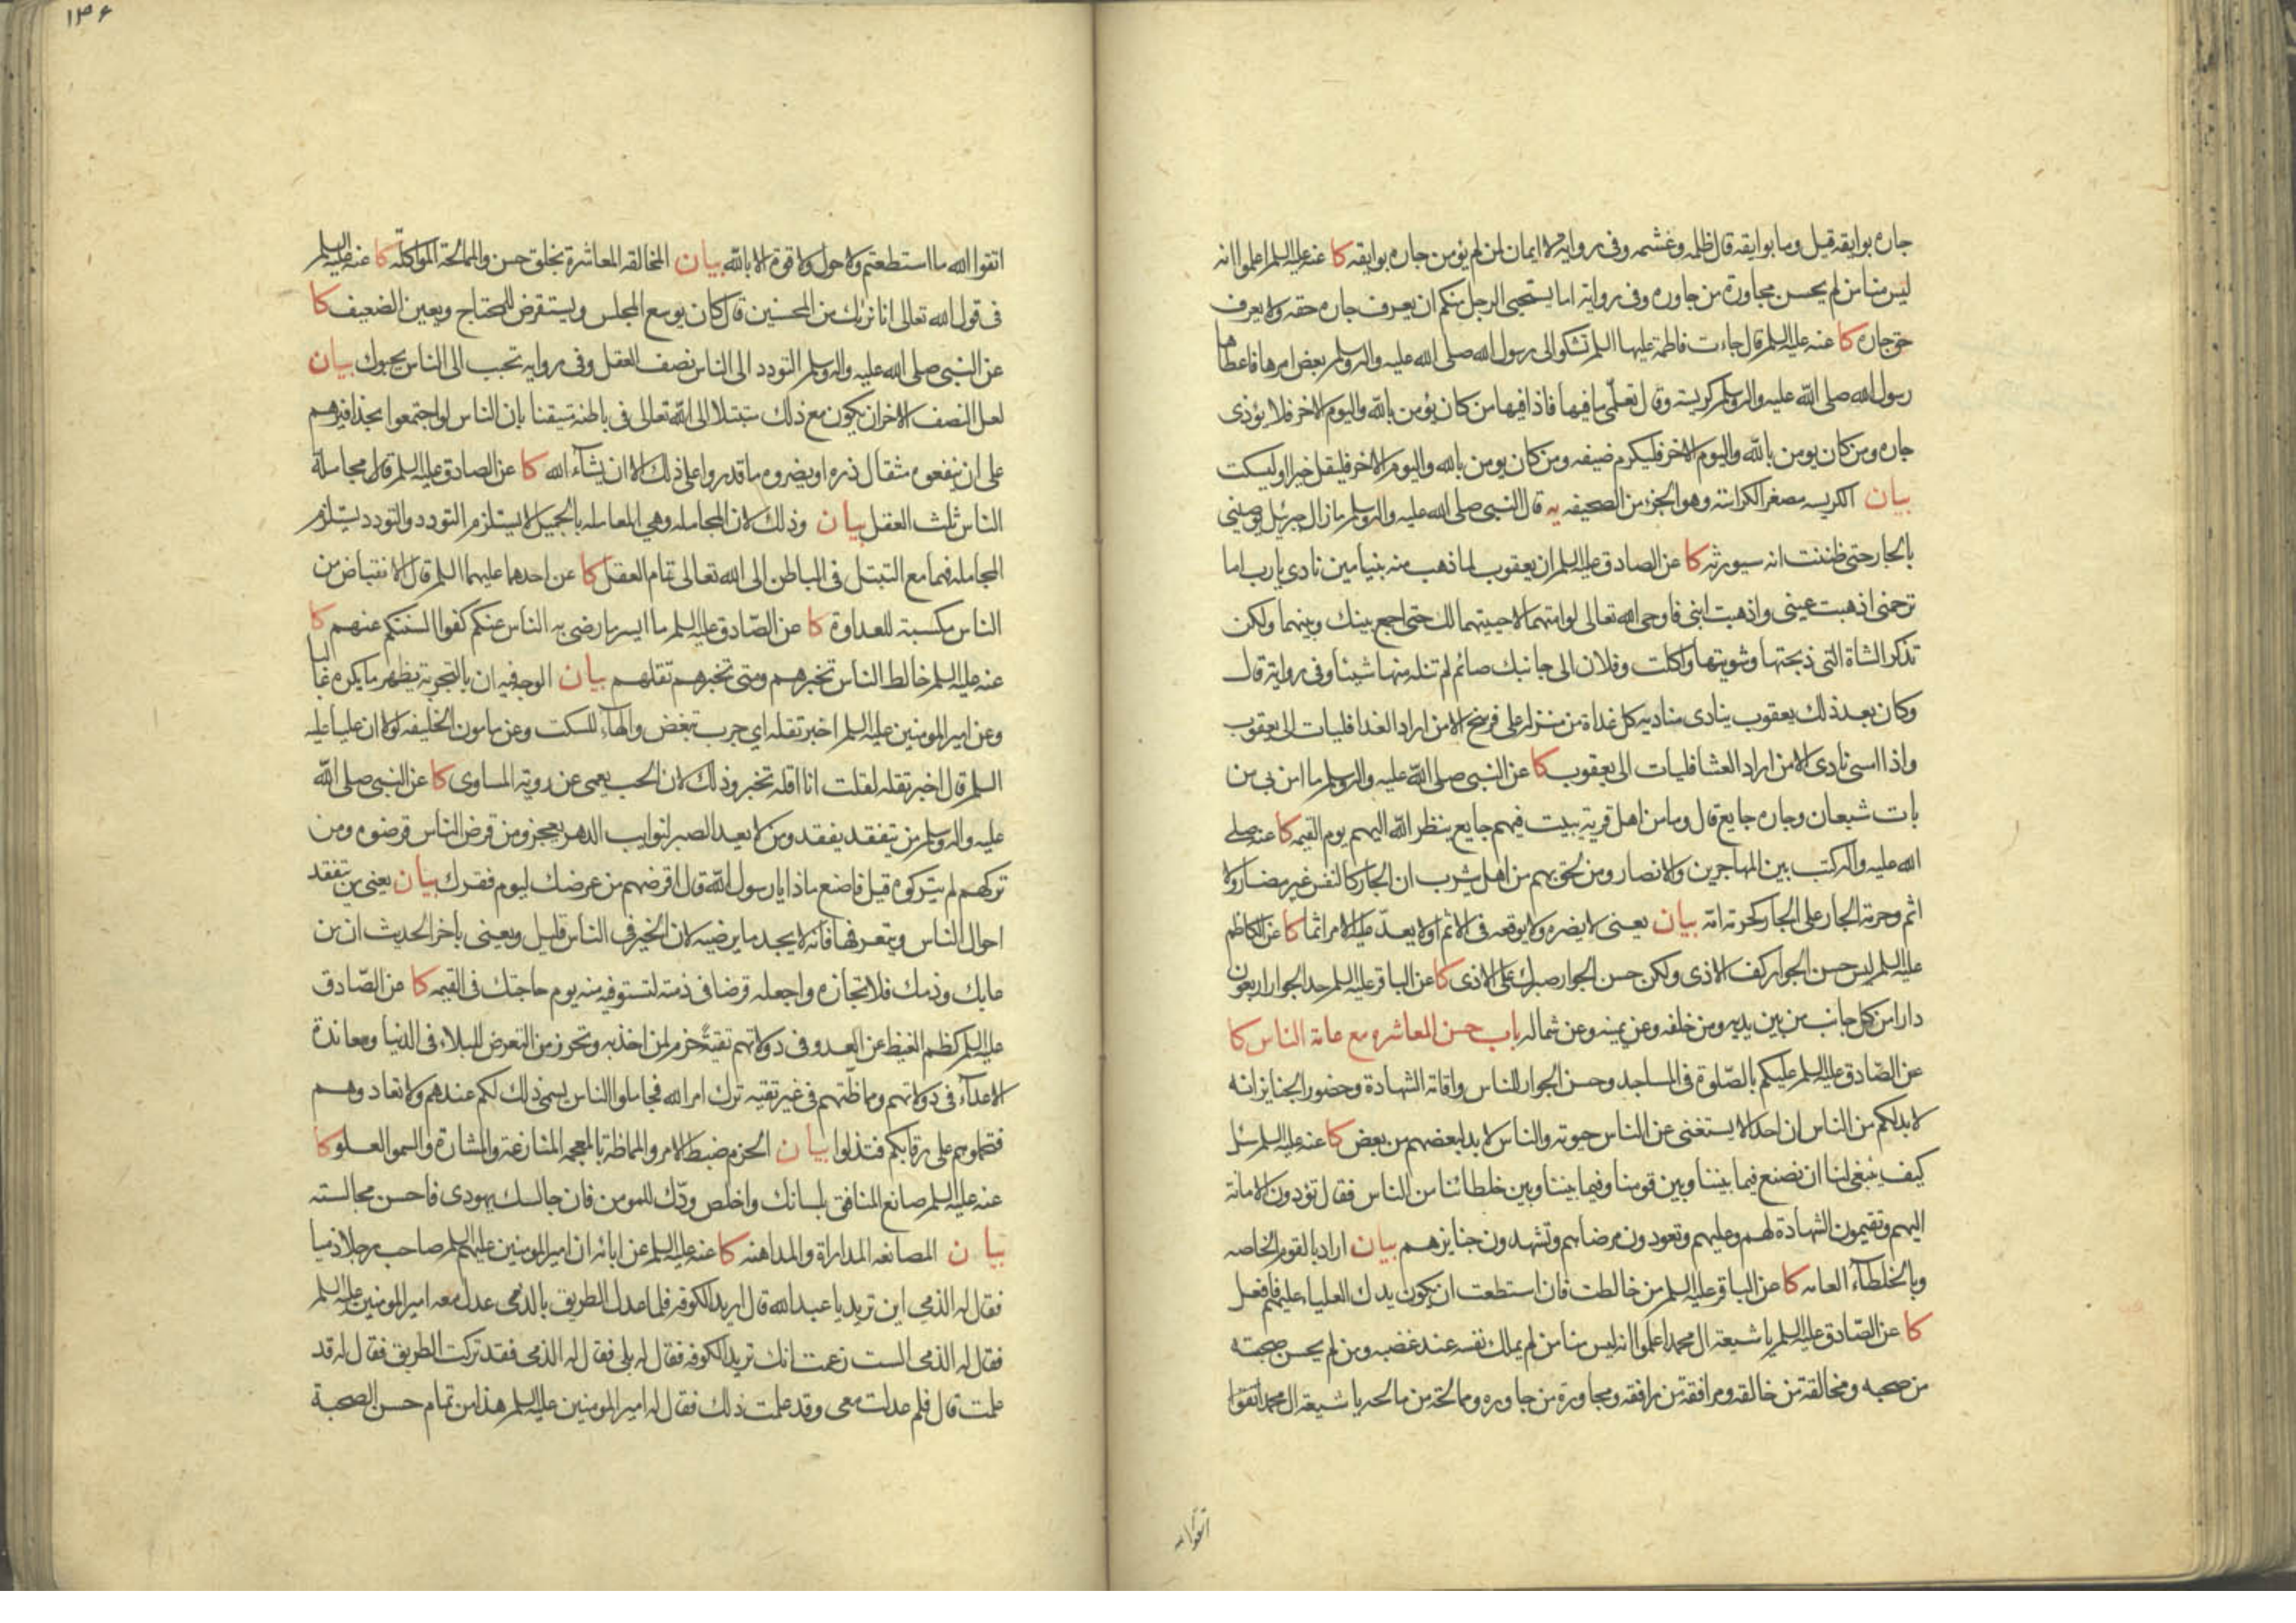 جاره بوايقه قيل وما بوايقه قال ظلمه وغشمه وفى رواية لا ايمان لمن لم يؤمن جاره بوايقه كا عنه عليه السلم اعلموا انه
ليس منا من لم يحسن مجاورة من جاوره وفى رواية اما يستحيى الرجل منكم ان يعرف جاره حقه ولا يعرف
حق جاره كا عنه عليه السلم قال جاءت فاطمة عليها السلم تشكوا الى رسول الله صلى الله عليه واله وسلم بعض امرها فاعطاها
رسول الله صلى الله عليه واله وسلم كريسة وقال تعلمى ما فيها فاذا فيها من كان يؤمن بالله واليوم الاخر فلا يؤذى
جاره ومن كان يومن بالله واليوم الاخر فليكرم ضيفه ومن كان يومن بالله واليوم الاخر فليقل خيرا او ليسكت
بيان الكريسه مصغر الكراسة وهو الجزء من الصحيفه يه قال النبى صلى الله عليه واله وسلم ما زال جبرئيل يوصينى
بالجار حتى ظننت انه سيورثه كا عن الصادق عليه السلم ان يعقوب لما ذهب منه بنيامين نادى يا رب اما
ترحمنى اذهبت عينى واذهبت ابنى فاوحى الله تعالى لو امتهما لاحييتهما لك حتى اجمع بينك وبينهما ولكن
تذكر الشاة التى ذبحتها وشويتها واكلت وفلان الى جانبك صائم لم تنله منها شيئا وفى رواية قال
وكان بعد ذلك يعقوب ينادى مناديه كل غداة من منزله على فرسخ الا من اراد الغدا فليات الى يعقوب
واذا امسى نادى الا من اراد العشا فليات الى يعقوب كا عن النبى صلى الله عليه واله وسلم ما امن بى من
بات شبعان وجاره جايع قال وما من اهل قرية يبيت فيهم جايع ينظر الله اليهم يوم القيمه كا عنه صلى
الله عليه واله كتب بين المهاجرين والانصار ومن لحق بهم من اهل يثرب ان الجار كالنفس غير مضار ولا
اثم وحرمة الجار على الجار كحرمة امه بيان يعنى لا يضره ولا يوقعه فى الاثم او لا يعد عليه الامر اثما كا عن الكاظم
عليه السلم ليس حسن الجوار كف الاذى ولكن حسن الجوار صبرك على الاذى كا عن الباقر عليه السلم حد الجوار اربعون
دارا من كل جانب من بين يديه ومن خلفه وعن يمينه وعن شماله باب حسن المعاشره مع عامة الناس كا
عن الصادق عليه السلم عليكم بالصلوة فى المساجد وحسن الجوار للناس واقامة الشهادة وحضور الجنايز انه
لا بد لكم من الناس ان احدا لا يستغنى عن الناس حيوته والناس لا بد لبعضهم من بعض كا عنه عليه السلم سئل
كيف ينبغى لنا ان نصنع فيما بيننا وبين قومنا وفيما بيننا وبين خلطائنا من الناس فقال تؤدون الامانة
اليهم وتقيمون الشهادة لهم وعليهم وتعودون مرضاهم وتشهدون جنايزهم بيان اراد بالقوم الخاصه
وبالخلطاء العامه كا عن الباقر عليه السلم من خالطت فان استطعت ان يكون يدك العليا عليهم فافعل
كا عن الصادق عليه السلم يا شيعة ال محمد اعلموا انه ليس منا من لم يملك نفسه عند غضبه ومن لم يحسن صحبة
من صحبه ومخالقة من خالقه ومرافقة من رافقه ومجاورة من جاوره وممالحة من مالحه يا شيعة ال محمد اتقوا
اتقوا الله
١٣٤
اتقوا الله ما استطعتم ولا حول ولا قوة الا بالله بيان المخالقه المعاشرة بخلق حسن والممالحة المواكلة كا عنه عليه السلم
فى قول الله تعالى انا نريك من المحسنين قال كان يوسع المجلس ويستقرض للمحتاج ويعين الضعيف كا
عن النبى صلى الله عليه واله وسلم التودد الى الناس نصف العقل وفى رواية تحبب الى الناس يحبوك بيان
لعل النصف الاخر ان يكون مع ذلك متبتلا الى الله تعالى فى باطنه متيقنا بان الناس لو اجتمعوا بحذافيرهم
على ان ينفعوه مثقال ذره او يضروه ما قدروا على ذلك الا ان يشاء الله كا عن الصادق عليه السلم قال مجاملة
الناس ثلث العقل بيان وذلك لان المجامله وهى المعامله بالجميل لا يستلزم التودد والتودد يستلزم
المجامله فهما مع التبتل فى الباطن الى الله تعالى تمام العقل كا عن احدهما عليهما السلم قال الانقباض من
الناس مكسبة للعداوة كا عن الصادق عليه السلم ما ايسر ما رضى به الناس عنكم كفوا السنتكم عنهم كا
عنه عليه السلم خالط الناس تخبرهم ومتى تخبرهم تقلهم بيان الوجه فيه ان بالتجربة يظهر ما يكره غالبا
وعن امير المومنين عليه السلم اخبر تقله اى جرب تبغض والهاء للسكت وعن مامون الخليفه لولا ان عليا عليه
السلم قال اخبر تقله لقلت انا اقله تخبر وذلك لان الحب يعمى عن روية المساوى كا عن النبى صلى الله
عليه واله وسلم من يتفقد يفقد ومن لا يعد الصبر لنوايب الدهر يعجز ومن قرض الناس قرضوه ومن
تركهم لم يتركوه قيل فاصنع ماذا يا رسول الله قال اقرضهم من عرضك ليوم فقرك بيان يعنى من يتفقد
احوال الناس ويتعرفها فانه لا يجد ما يرضيه لان الخير فى الناس قليل ويعنى باخر الحديث ان من
عابك وذمك فلا تجازه واجعله قرضا فى ذمته لتستوفيه منه يوم حاجتك فى القيمه كا عن الصادق
عليه السلم كظم الغيظ عن العدو فى دولاتهم تقية حزم لمن اخذ به وتحرز من التعرض للبلاء فى الدنيا ومعاندة
الاعداء فى دولاتهم ومماظتهم فى غير تقيه ترك امر الله فجاملوا الناس يسمى ذلك لكم عندهم ولا تعادوهم
فتحملوهم على رقابكم فتذلوا بيان الحزم ضبط الامر والمماظة بالمعجمه المنازعة والمشارة والسمو العلو كا
عنه عليه السلم صانع المنافق بلسانك واخلص ودك للمومن فان جالسك يهودى فاحسن مجالسته
بيان المصانعه المداراة والمداهنه كا عنه عليه السلم عن ابائه ان امير المومنين عليهم السلم صاحب رجلا ذميا
فقال له الذمى اين تريد يا عبد الله قال اريد الكوفه فلما عدل الطريق بالذمى عدل معه امير المومنين عليه السلم
فقال له الذمى الست زعمت انك تريد الكوفه فقال له بلى فقال له الذمى فقد تركت الطريق فقال له قد
علمت قال فلم عدلت معى وقد علمت ذلك فقال له امير المومنين عليه السلم هذا من تمام حسن الصحبة